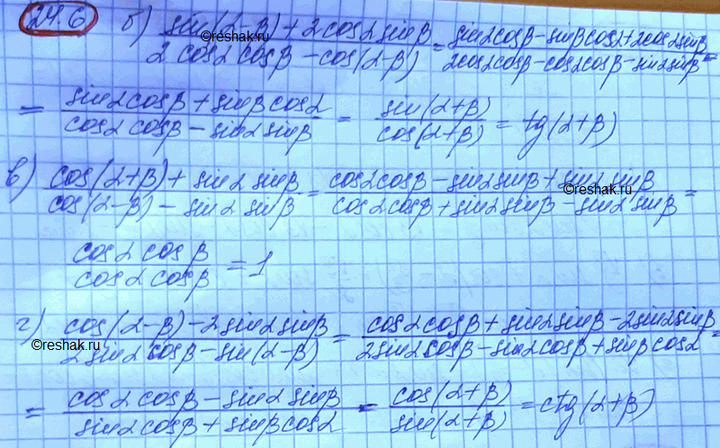 24.6 б) sin(α-β) + 2cosα sinβ / 2cosα cosβ - cos(α-β) = sinα cosβ - sinβ cosα + 2cosα sinβ / 2cosα cosβ - cosα cosβ - sinα sinβ =
= sinα cosβ + sinβ cosα / cosα cosβ - sinα sinβ = sin(α+β) / cos(α+β) = tg(α+β)
в) cos(α+β) + sinα sinβ / cos(α-β) - sinα sinβ = cosα cosβ - sinα sinβ + sinα sinβ / cosα cosβ + sinα sinβ - sinα sinβ =
cosα cosβ / cosα cosβ = 1
г) cos(α-β) - 2sinα sinβ / 2sinα cosβ - sin(α-β) = cosα cosβ + sinα sinβ - 2sinα sinβ / 2sinα cosβ - sinα cosβ + sinβ cosα =
= cosα cosβ - sinα sinβ / sinα cosβ + sinβ cosα = cos(α+β) / sin(α+β) = ctg(α+β)
©reshak.ru
©reshak.ru
©reshak.ru
©reshak.ru